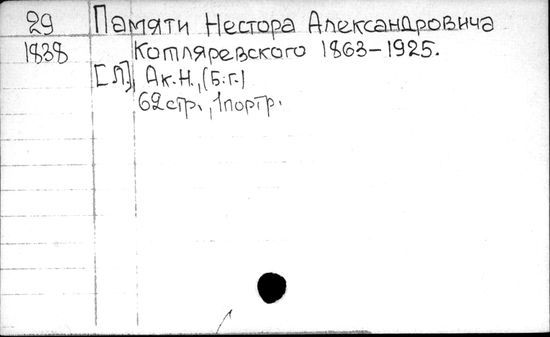 29 Памяти Нестора Александровича
1838 Котляревского 1863-1925.
[Л], Ак.Н., (Б.г.)
62 стр., 1 портр.